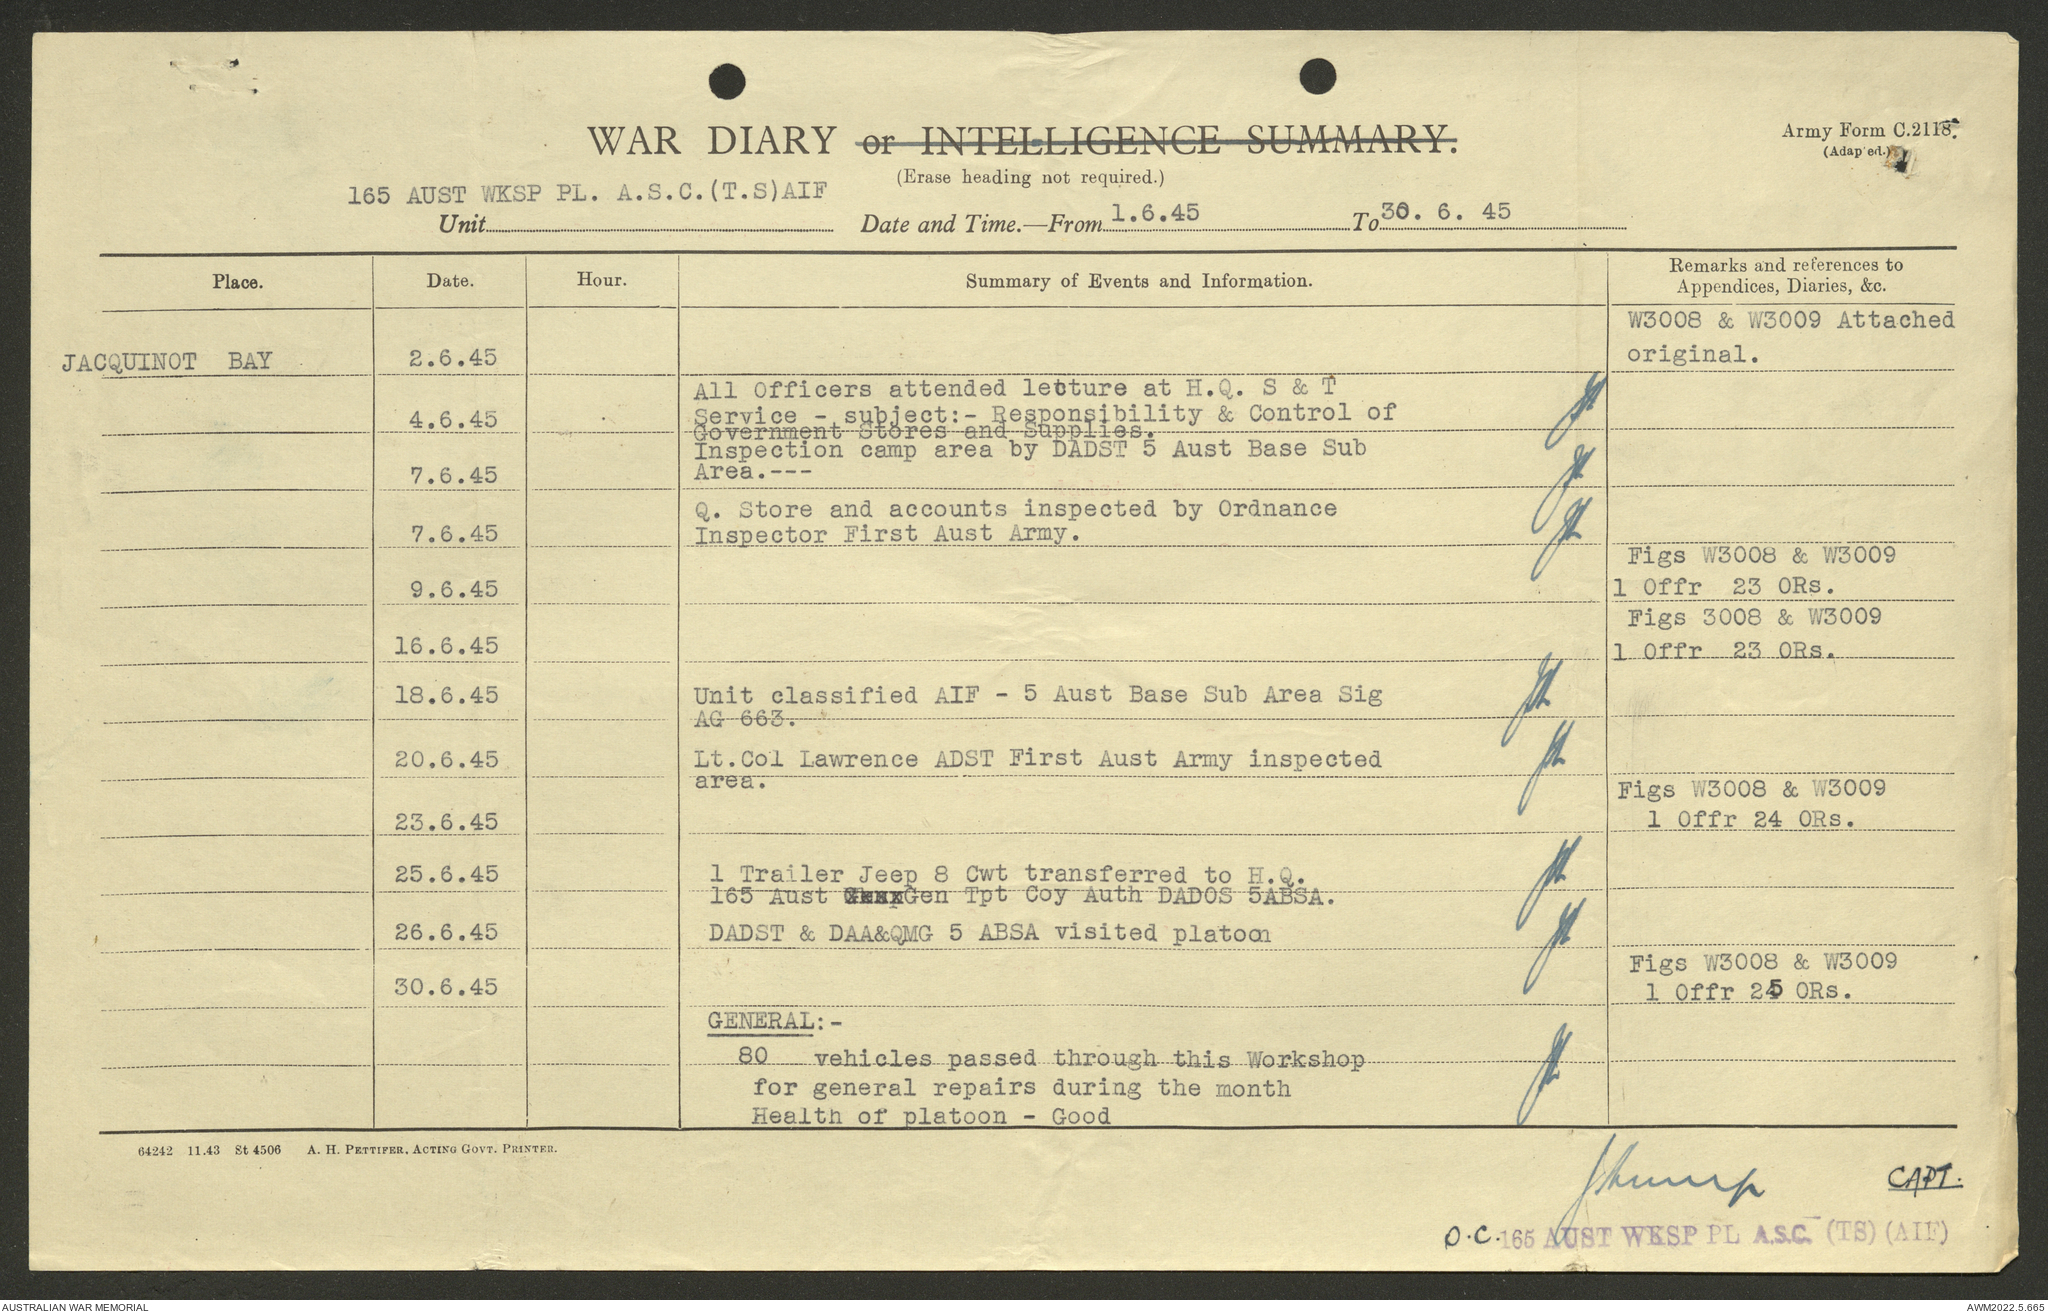 WAR DIARY or INTELLIGENCE SUMMARY.
Army Form C.2118.
(Adap'ed.)
(Erase heading not required.)
165 AUST WKSP PL. A.S.C.(T.S)AIF
Unit Date and Time.—From 1.6.45 To 30. 6. 45
Place. Date. Hour. Summary of Events and Information. Remarks and references to
Appendices, Diaries, &c.
W3008 & W3009 Attached
JACQUINOT BAY 2.6.45 original.
All Officers attended letture at H.Q. S & T
4.6.45 Service - subject:- Responsibility & Control of
Government Stores and Supplies.
Inspection camp area by DADST 5 Aust Base Sub
7.6.45 Area.---
Q. Store and accounts inspected by Ordnance
7.6.45 Inspector First Aust Army.
Figs W3008 & W3009
9.6.45 1 Offr 23 ORs.
Figs 3008 & W3009
16.6.45 1 Offr 23 ORs.
18.6.45 Unit classified AIF - 5 Aust Base Sub Area Sig
AG 663.
20.6.45 Lt.Col Lawrence ADST First Aust Army inspected
area.
Figs W3008 & W3009
23.6.45 1 Offr 24 ORs.
25.6.45 1 Trailer Jeep 8 Cwt transferred to H.Q.
165 Aust Gen Tpt Coy Auth DADOS 5ABSA.
26.6.45 DADST & DAA&QMG 5 ABSA visited platoon
Figs W3008 & W3009
30.6.45 1 Offr 25 ORs.
GENERAL:-
80 vehicles passed through this Workshop
for general repairs during the month
Health of platoon - Good
64242 11.43 St 4506 A. H. PETTIFER, ACTING GOVT. PRINTER.
CAPT.
O.C. 165 AUST WKSP PL A.S.C. (TS) (AIF)
AUSTRALIAN WAR MEMORIAL
AWM2022.5.665